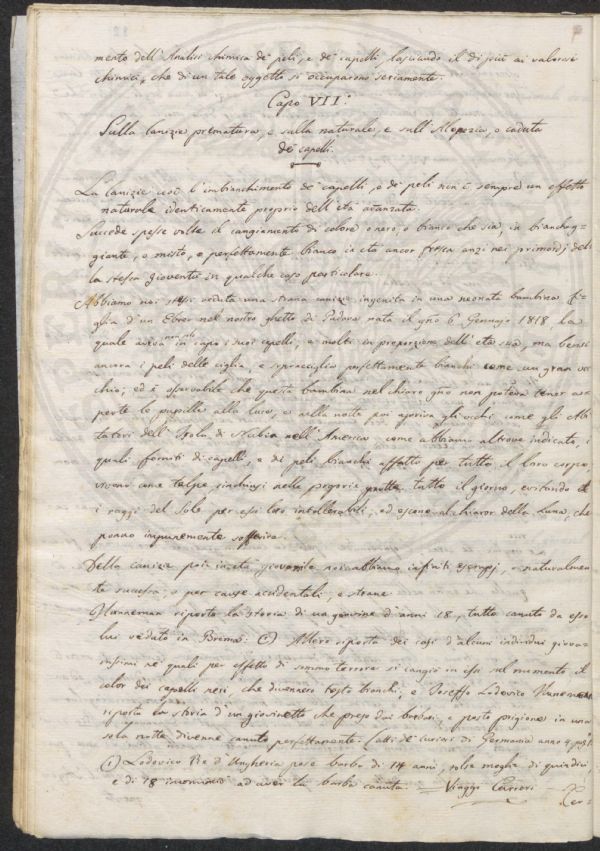 mento dell'Analisi chimica de' peli, e de' capelli, lasciando il di più ai valorosi
chimici, che di un tale oggetto si occuparono seriamente.
Capo VII.°
Sulla Canizie prematura, e sulla naturale, e sull'Alopezia, o caduta
de' capelli.
La Canizie cioè l'imbianchimento de' capelli, e de' peli non è sempre un effetto
naturale identicamente proprio dell'età avanzata.
Succede spesse volte il cangiamento di colore o nero, o bianco che sia, in biancheg-
giante, o misto, o perfettamente bianco in età ancor fresca anzi nei primordj del-
la stessa gioventù in qualche caso particolare.
Abbiamo noi stessi veduta una strana canizie ingenita in una neonata bambina fi-
glia d'un Ebreo nel nostro ghetto di Padova nata il gno 6 Gennajo 1818 la
quale aveva non solo in capo i suoi capelli, e molti in proporzione dell'età sua, ma bensì
ancora i peli delle ciglia, e sopracciglia perfettamente bianchi come un gran vec-
chio; ed è osservabile che questa bambina nel chiaro gno non poteva tener a-
perte le pupille alla luce, e nella notte poi apriva gli occhi come gli Abi-
tatori dell'Isola di Nubia nell'America come abbiamo altrove indicato, i
quali forniti di capelli, e di peli bianchi affatto per tutto il loro corpo,
vivono come talpe rinchiusi nella propria grotta tutto il giorno, evitando
i raggi del Sole per essi loro intollerabili, ed escono al chiaror della Luna, che
ponno impunemente soffrire.
Della canizie poi in età giovanile noi abbiamo infiniti esempj, o naturalmen-
te successa, o per cause accidentali, e strane.
Hanneman riporta la storia di un giovine d'anni 18, tutto canuto da esso
lui veduto in Brema: (1) Altero riporta dei casi d'alcuni individui giova-
nissimi nei quali per effetto di sommo terrore si cangiò in essi sul momento il
color dei capelli neri, che divennero tosto bianchi, e Joseffo Lodovico
riporta la storia d'un giovinetto che preso dai barbari, e posto prigione in una
sola notte divenne canuto perfettamente. (atti de' curiosi di Germania anno 4.
(1) Lodovico Re d'Ungheria pose barba di 14 anni, tolse moglie di quindici,
e di 18 incominciò ad aver la barba canuta. = Viaggi Carreri –
Cer=